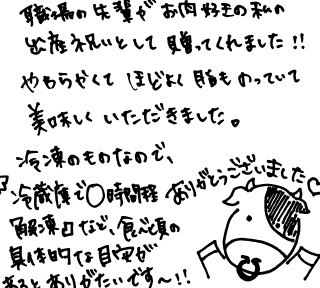 職場の先輩がお肉好きの私の
出産祝いとして贈ってくれました!!
やわらかくてほどよく脂ものっていて
美味しくいただきました。
冷凍のものなので、
冷蔵庫で〇時間程
解凍など、食べ頃の
具体的な目安が
あるとありがたいです〜!!
ありがとうございました